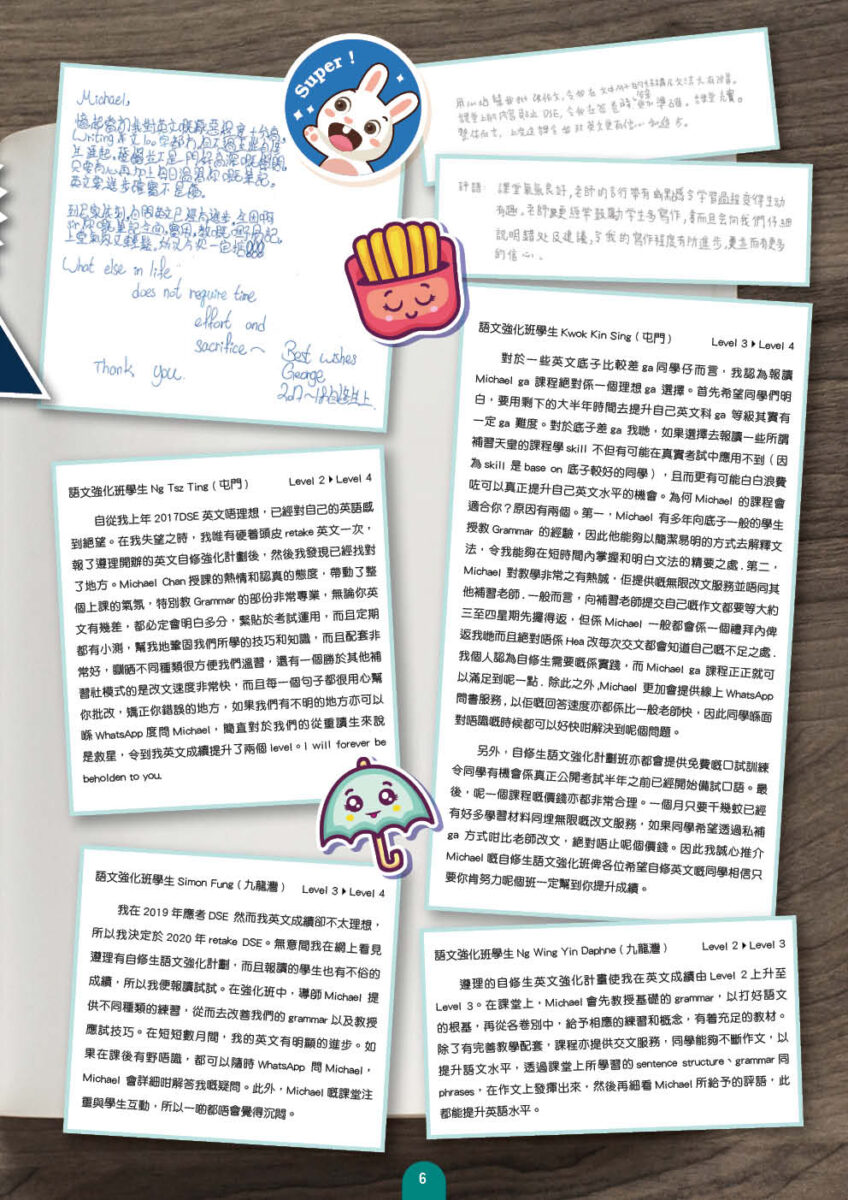 Super !
Michael,
Writing
What else in life
does not require time
effort and
sacrifice~
Best wishes
George
Thank you.
評語: 課堂氣氛良好,老師的言行帶有幽默感令學習過程變得生動
有趣。老師更經常鼓勵學生多寫作,而且會向我們仔細
說明錯處及建議,令我的寫作程度有所進步,更進而有更多
的信心。
語文強化班學生 Ng Tsz Ting ( 屯門 ) Level 2 ▸ Level 4
自從我上年 2017DSE 英文唔理想,已經對自己的英語感
到絕望。在我失望之時,我唯有硬着頭皮 retake 英文一次,
報了遵理開辦的英文自修強化計劃後,然後我發現已經找對
了地方。Michael Chan 授課的熱情和認真的態度,帶動了整
個上課的氣氛,特別教 Grammar 的部份非常專業,無論你英
文有幾差,都必定會明白多分,緊貼於考試運用,而且定期
都有小測,幫我地鞏固我們所學的技巧和知識,而且配套非
常好,瞓晒不同種類很方便我們溫習,還有一個勝於其他補
習社模式的是改文速度非常快,而且每一個句子都很用心幫
你批改,矯正你錯誤的地方,如果我們有不明的地方亦可以
喺 WhatsApp 度問 Michael,簡直對於我們的從重讀生來說
是救星,令到我英文成績提升了兩個 level。I will forever be
beholden to you.
語文強化班學生 Simon Fung ( 九龍灣 ) Level 3 ▸ Level 4
我在 2019 年應考 DSE 然而我英文成績卻不太理想,
所以我決定於 2020 年 retake DSE。無意間我在網上看見
遵理有自修生語文強化計劃,而且報讀的學生也有不俗的
成績,所以我便報讀試試。在強化班中,導師 Michael 提
供不同種類的練習,從而去改善我們的 grammar 以及教授
應試技巧。在短短數月間,我的英文有明顯的進步。如
果在課後有野唔識,都可以隨時 WhatsApp 問 Michael,
Michael 會詳細咁解答我嘅疑問。此外,Michael 嘅課堂注
重與學生互動,所以一啲都唔會覺得沉悶。
語文強化班學生 Kwok Kin Sing ( 屯門 ) Level 3 ▸ Level 4
對於一些英文底子比較差 ga 同學仔而言,我認為報讀
Michael ga 課程絕對係一個理想 ga 選擇。首先希望同學們明
白,要用剩下的大半年時間去提升自己英文科 ga 等級其實有
一定 ga 難度。對於底子差 ga 我哋,如果選擇去報讀一些所謂
補習天皇的課程學 skill 不但有可能在真實考試中應用不到(因
為 skill 是 base on 底子較好的同學),且而更有可能白白浪費
咗可以真正提升自己英文水平的機會。為何 Michael 的課程會
適合你?原因有兩個。第一,Michael 有多年向底子一般的學生
授教 Grammar 的經驗,因此他能夠以簡潔易明的方式去解釋文
法,令我能夠在短時間內掌握和明白文法的精要之處 . 第二,
Michael 對教學非常之有熱誠,佢提供嘅無限改文服務並唔同其
他補習老師 . 一般而言,向補習老師提交自己嘅作文都要等大約
三至四星期先攞得返,但係 Michael 一般都會係一個禮拜內俾
返我哋而且絕對唔係 Hea 改每次交文都會知道自己嘅不足之處 .
我個人認為自修生需要嘅係實踐,而 Michael ga 課程正正就可
以滿足到呢一點 . 除此之外 ,Michael 更加會提供線上 WhatsApp
問書服務 , 以佢嘅回答速度亦都係比一般老師快,因此同學喺面
對唔識嘅時候都可以好快咁解決到呢個問題。
另外,自修生語文強化計劃班亦都會提供免費嘅口試訓練
令同學有機會係真正公開考試半年之前已經開始備試口語。最
後,呢一個課程嘅價錢亦都非常合理。一個月只要千幾蚊已經
有好多學習材料同埋無限嘅改文服務,如果同學希望透過私補
ga 方式咁比老師改文,絕對唔止呢個價錢。因此我誠心推介
Michael 嘅自修生語文強化班俾各位希望自修英文嘅同學相信只
要你肯努力呢個班一定幫到你提升成績。
語文強化班學生 Ng Wing Yin Daphne ( 九龍灣 ) Level 2 ▸ Level 3
遵理的自修生英文強化計畫使我在英文成績由 Level 2 上升至
Level 3。在課堂上,Michael 會先教授基礎的 grammar,以打好語文
的根基,再從各卷別中,給予相應的練習和概念,有着充足的教材。
除了有完善教學配套,課程亦提供交文服務,同學能夠不斷作文,以
提升語文水平,透過課堂上所學習的 sentence structure、grammar 同
phrases,在作文上發揮出來,然後再細看 Michael 所給予的評語,此
都能提升英語水平。
6